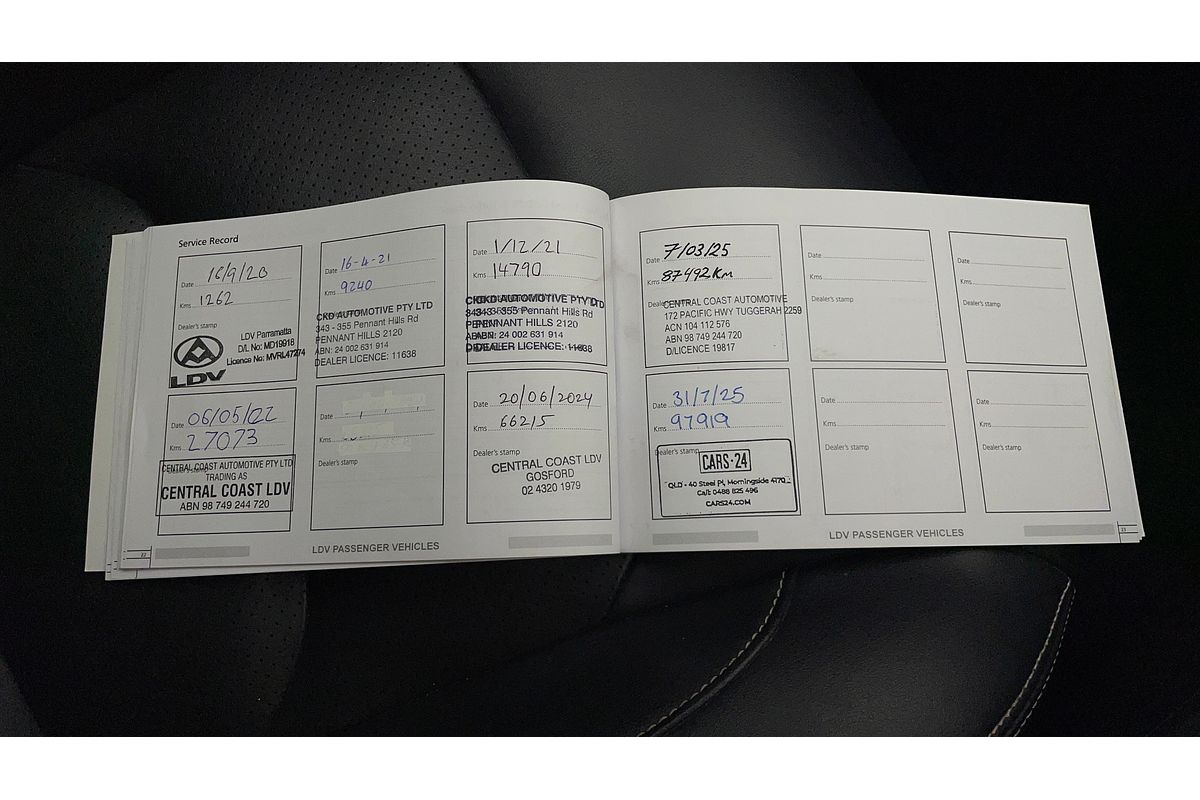 Service Record
Date 18/9/20
Kms 1262
Dealer's stamp
LDV Parramatta
D/L No: MD19918
Licence No: MVRL47274
LDV
Date 16-4-21
Kms 9240
CKD AUTOMOTIVE PTY LTD
343 - 355 Pennant Hills Rd
PENNANT HILLS 2120
ABN: 24 002 631 914
DEALER LICENCE: 11638
Date 1/12/21
Kms 14790
CKD AUTOMOTIVE PTY LTD
343-355 Pennant Hills Rd
PENNANT HILLS 2120
ABN: 24 002 631 914
DEALER LICENCE: 11638
Date 06/05/22
Kms 27073
Dealer's stamp
CENTRAL COAST AUTOMOTIVE PTY LTD
TRADING AS
CENTRAL COAST LDV
ABN 98 749 244 720
Date
Kms
Dealer's stamp
Date 20/06/2024
Kms 66215
CENTRAL COAST LDV
GOSFORD
02 4320 1979
22
LDV PASSENGER VEHICLES
Date 7/03/25
Kms 87492 Km
Dealer's stamp
CENTRAL COAST AUTOMOTIVE
172 PACIFIC HWY TUGGERAH 2259
ACN 104 112 576
ABN 98 749 244 720
D/LICENCE 19817
Date
Kms
Dealer's stamp
Date
Kms
Dealer's stamp
Date 31/7/25
Kms 97919
Dealer's stamp
CARS·24
QLD - 40 Steel Pl, Morningside 4170
Call: 0488 825 496
CARS24.COM
Date
Kms
Dealer's stamp
Date
Kms
Dealer's stamp
LDV PASSENGER VEHICLES
23